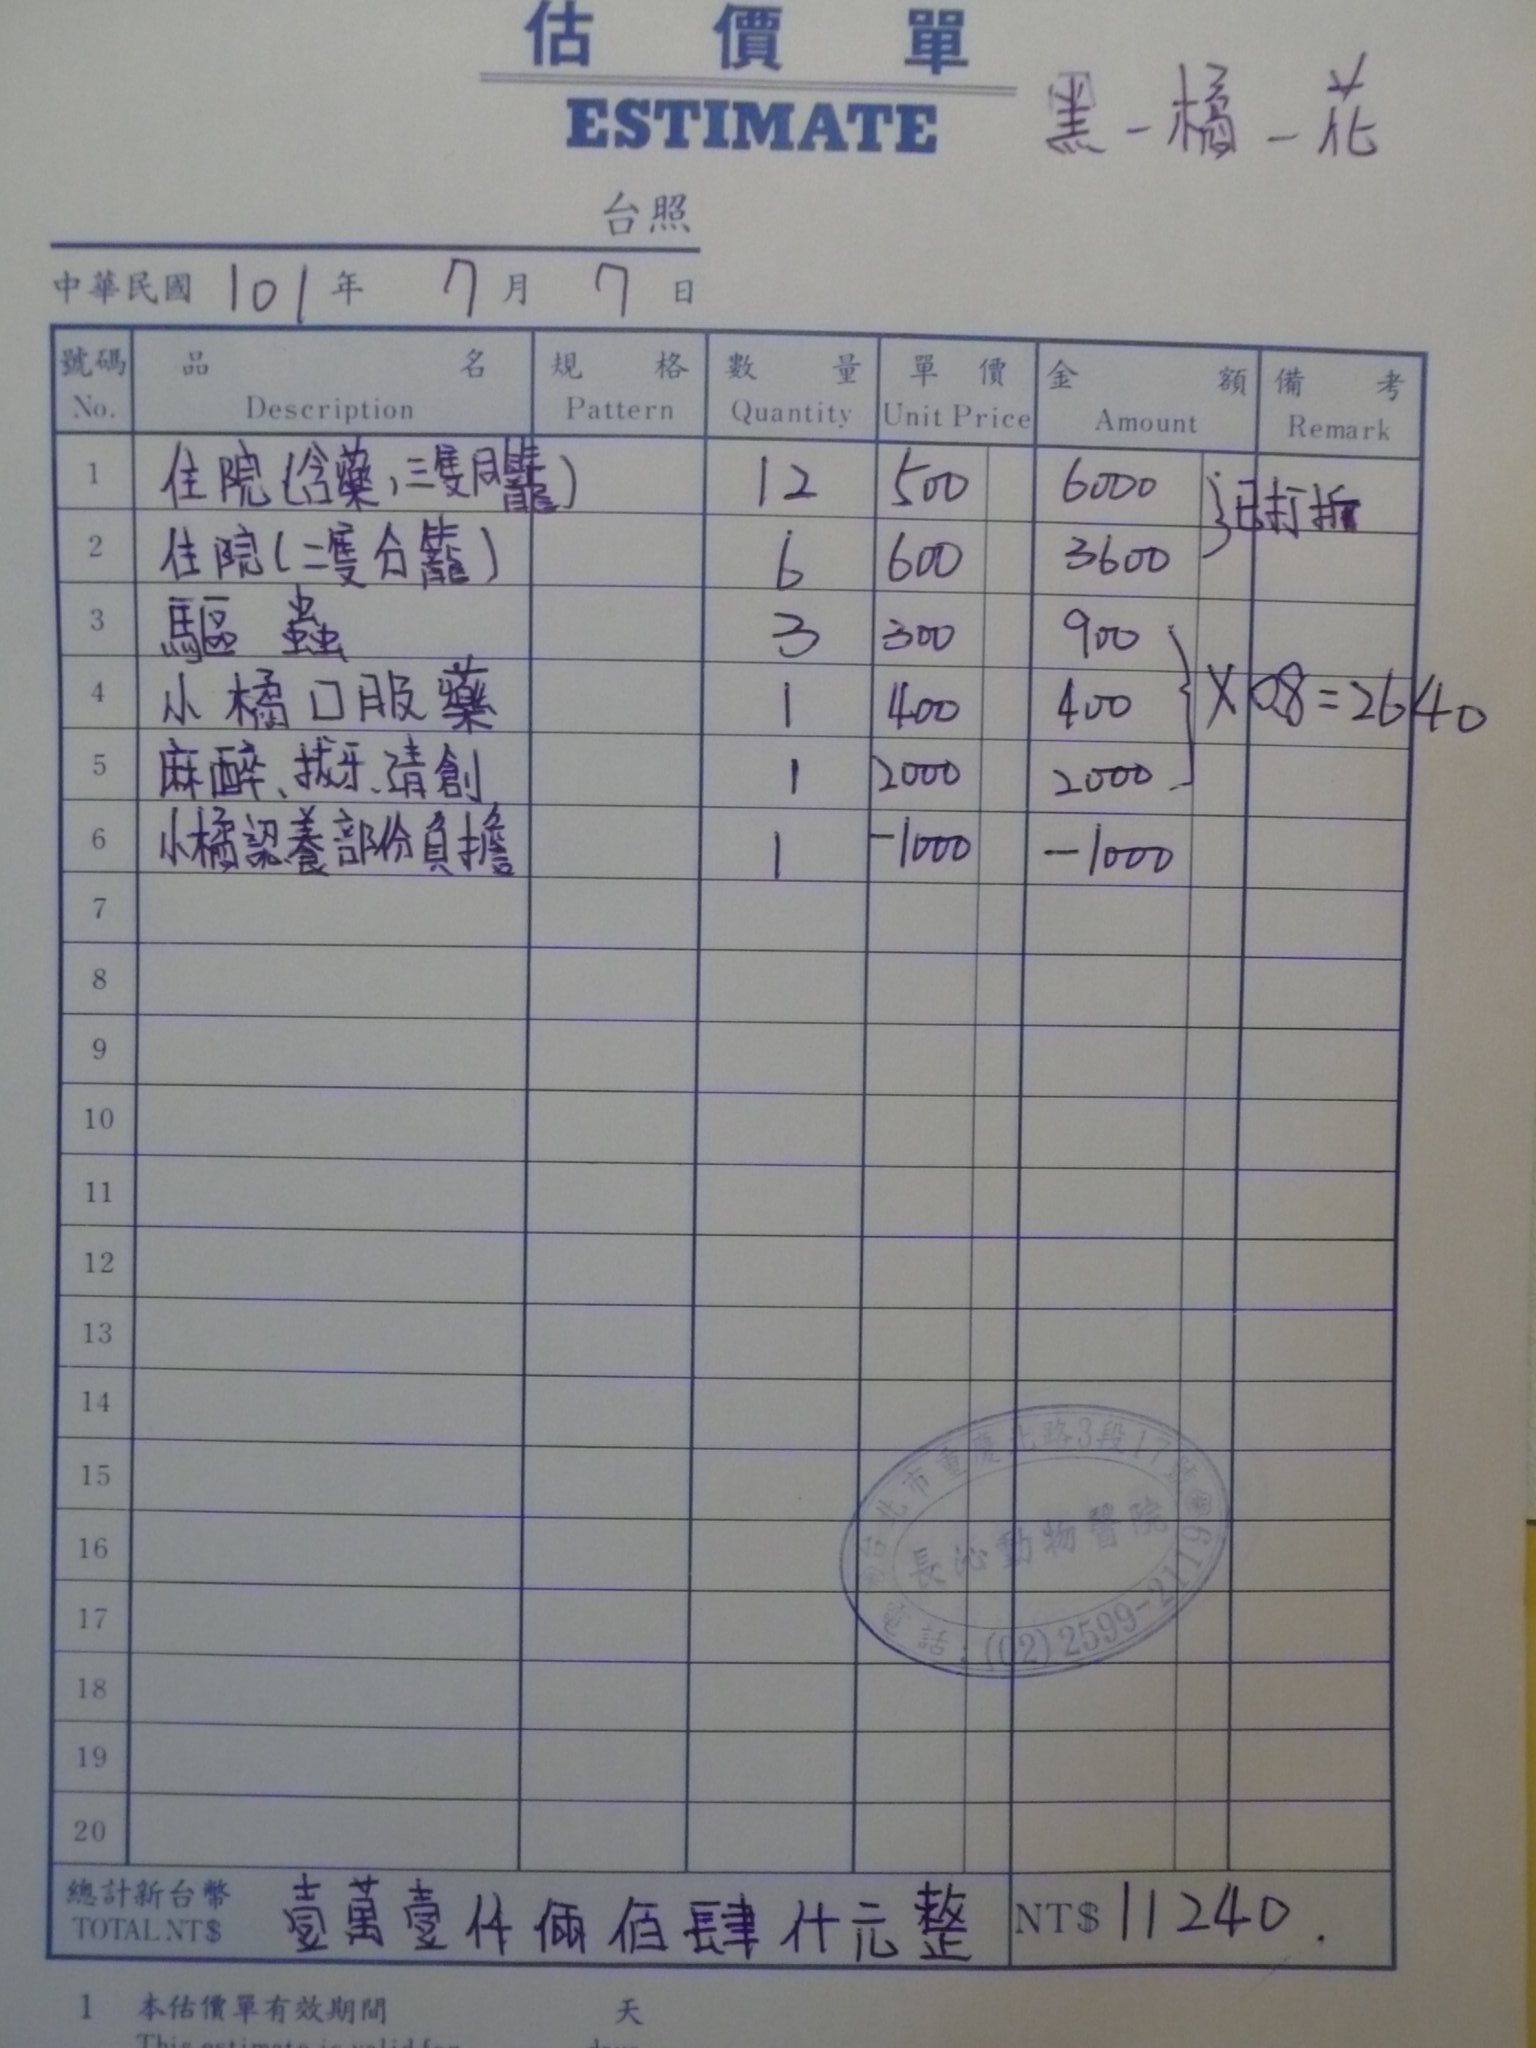 估價單
ESTIMATE
黑-橘-花
台照
中華民國 101 年 7 月 7 日
號碼 品名 規格 數量 單價 金額 備考
No. Description Pattern Quantity Unit Price Amount Remark
1 住院(含藥,三隻同籠) 12 500 6000 } 已打折
2 住院(二隻分籠) 6 600 3600
3 驅蟲 3 300 900
4 小橘口服藥 1 400 400 } X 0.8 = 2640
5 麻醉、拔牙、清創 1 2000 2000
6 小橘認養部份負擔 1 -1000 -1000
7
8
9
10
11
12
13
14
15
16
17
18
19
20
台北市重慶北路3段17號
長沁動物醫院
電話:(02)2599-2119
總計新台幣 壹萬壹仟倆佰肆什元整 NT$ 11240.
TOTAL NT$
1 本估價單有效期間 天
This estimate is valid for days